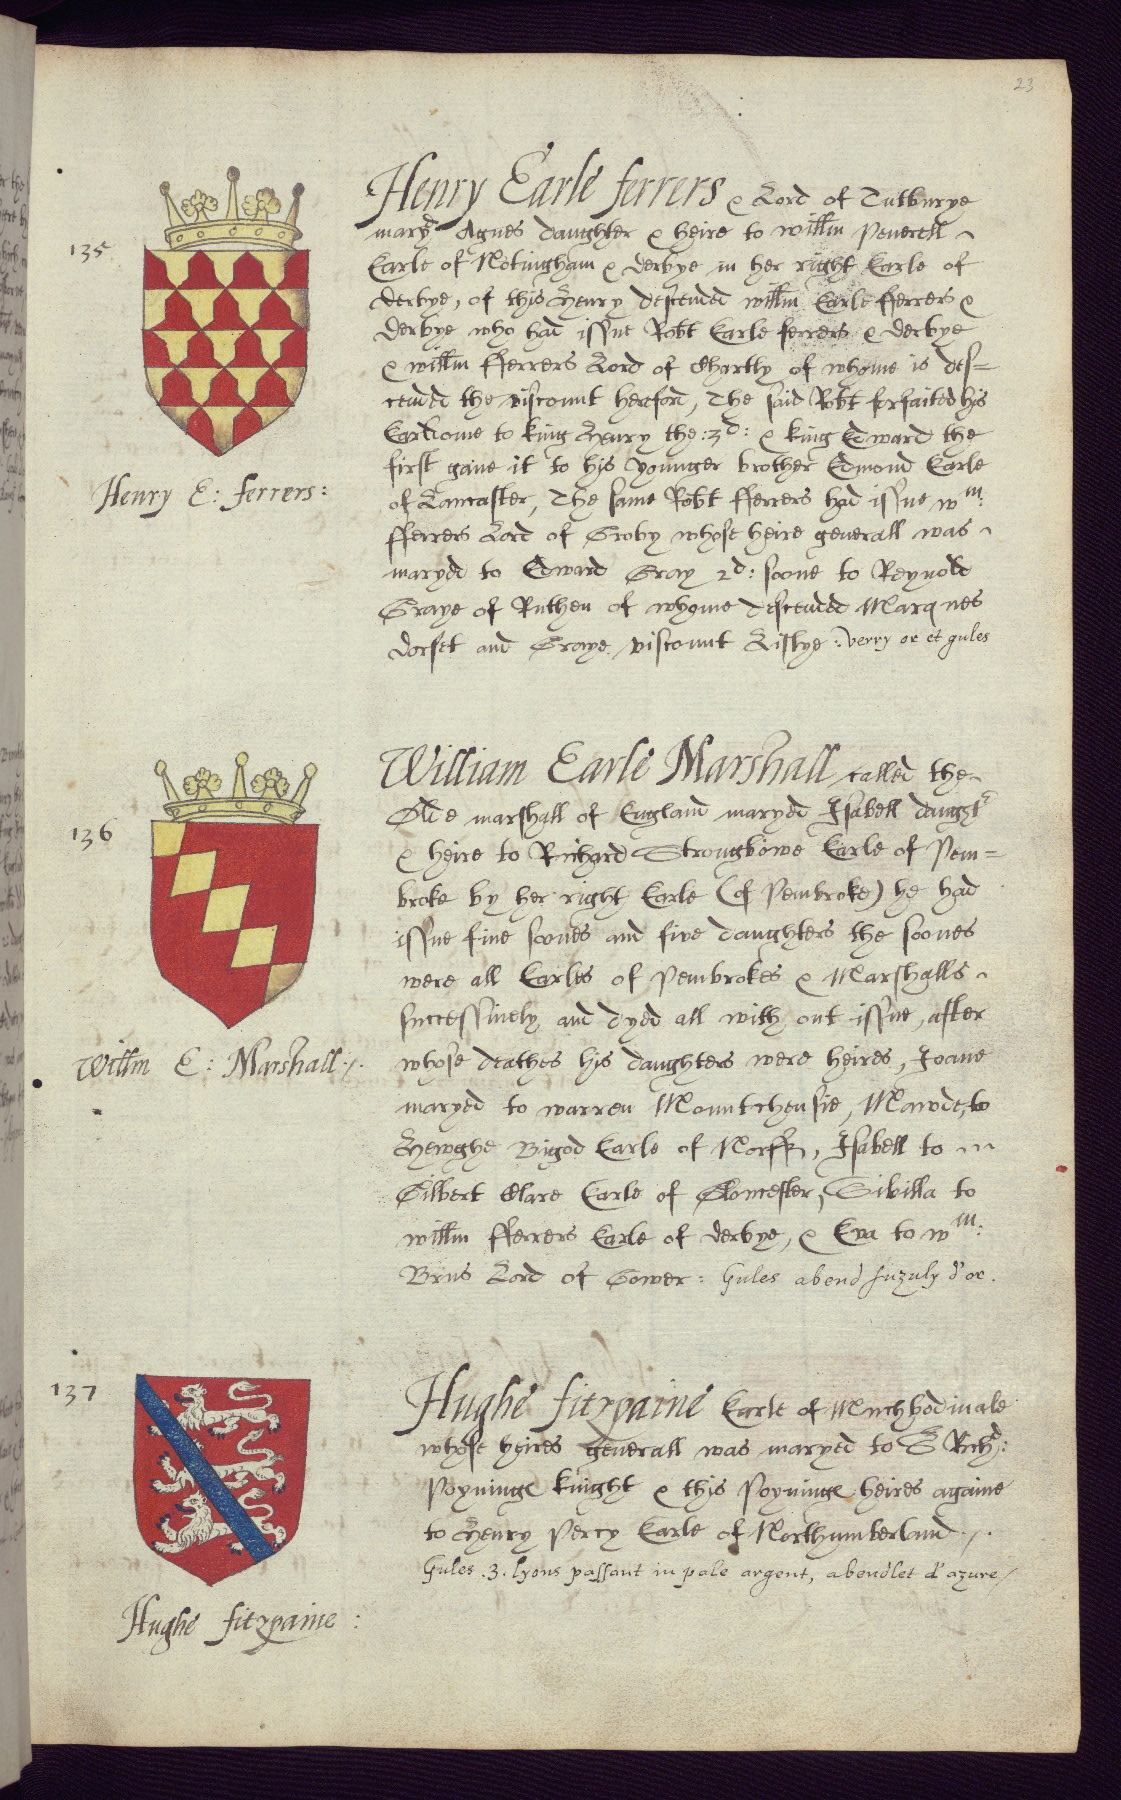 23
135
Henry Earle ferrers & Lord of Tutburye
maryd Agnes daughter & heire to willm Peverell
Earle of Notingham & derbye in her right Earle of
derbye, of this Henry descended willm Earle fferrers &
derbye who had issue Robt Earle ferrers & derbye
& willm fferrers Lord of Chartly of whome is des=
cended the viscount hereford, The said Robt forfaited his
Earldome to king Henry the :3d: & king Edward the
first gaue it to his younger brother Edmond Earle
of Lancaster, The same Robt fferrers had issue wm:
fferrers Lord of Groby whose heire generall was
maryed to Edward Gray 2d: soone to Reynold
Graye of Ruthen of whome descended Marques
dorset and Graye viscount Lislye : verry or et gules
Henry E: ferrers:
136
William Earle Marshall called the
Olde marshall of England maryed Isabell daught
& heire to Richard Strongbowe Earle of Pem=
broke by her right Earle (of Pembroke) he had
issue fiue soones and five daughters the soones
were all Earles of Pembrokes & Marshalls
successiuely and dyed all with out issue, after
whose deathes his daughters were heires, Joane
maryed to warren Mountchensie, Mawde, to
Hewghe Bigod Earle of Norff, Isabell to
Gilbert Clare Earle of Glomester, Sibilla to
willm fferrers Earle of derbye, & Eva to wm:
Brus Lord of Gower: Gules abend fuzuly d'or.
Willm E: Marshall:
137
Hughe fitzpaine Earle of
whose heires generall was maryed to S Richd:
Poyninge knight & this Poyninge heires againe
to Henry Percy Earle of Northumberland.
Gules .3. lyons passant in pale argent, abendlet d'azure
Hughe fitzpaine :